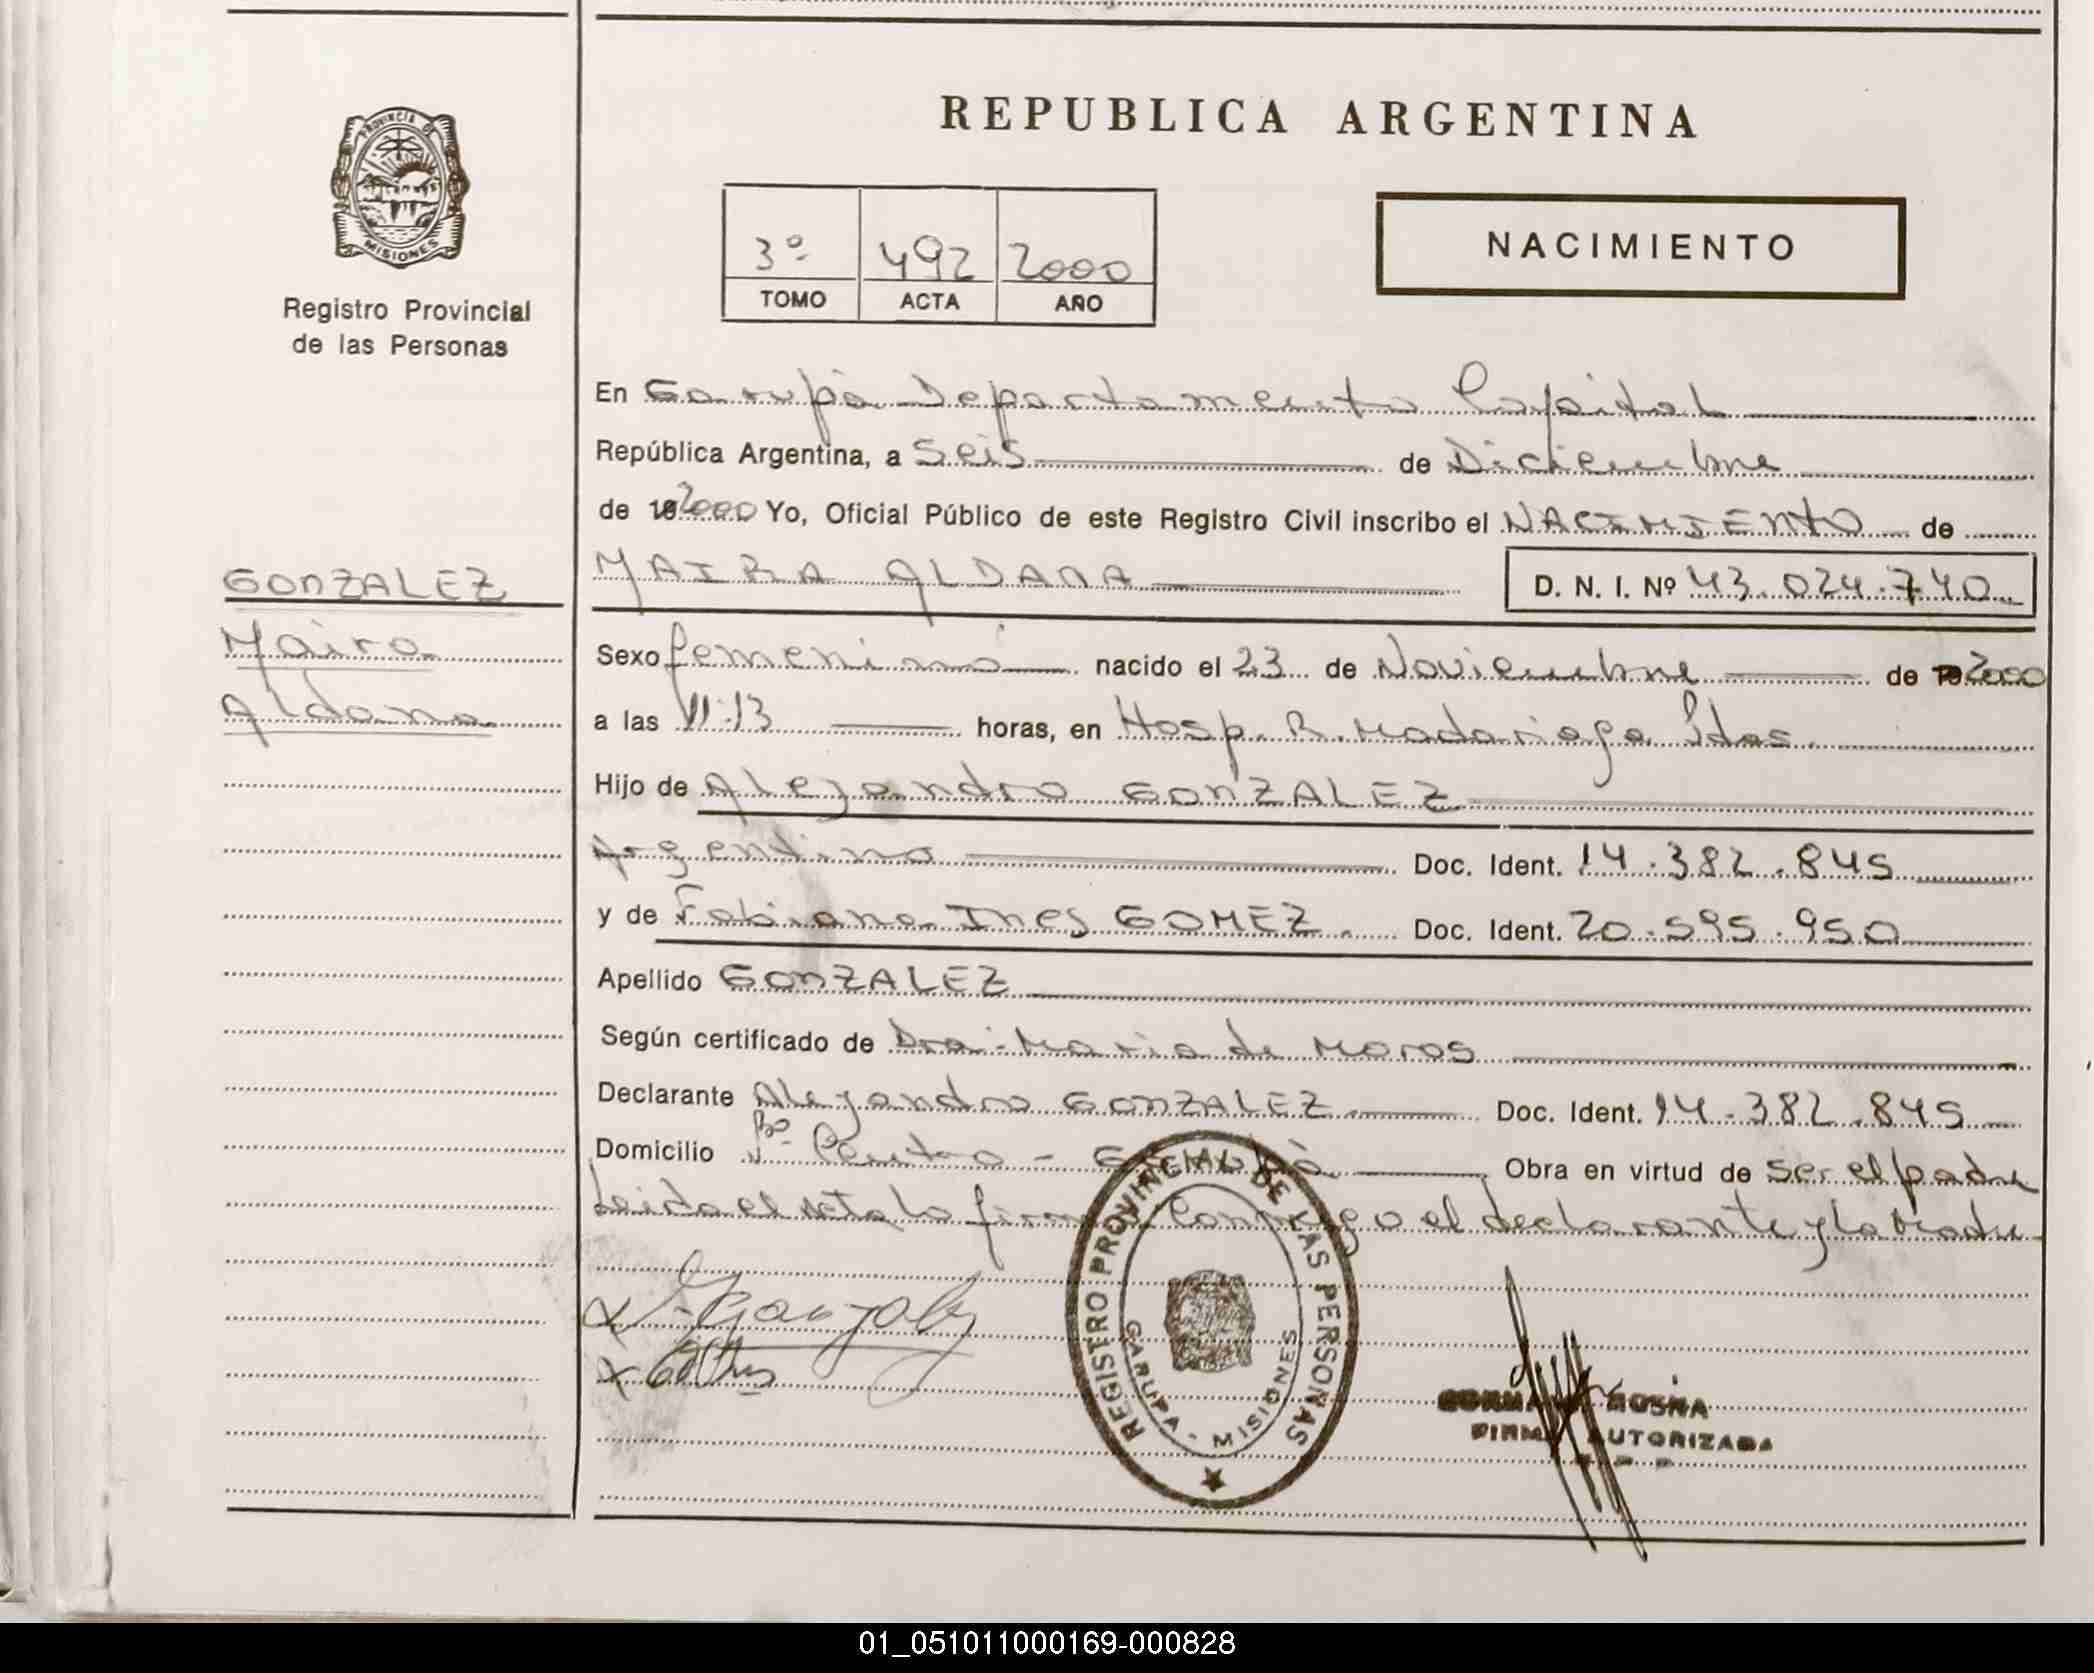 REPUBLICA ARGENTINA
PROVINCIA DE
MISIONES
Registro Provincial
de las Personas
3º 492 2000
TOMO ACTA AÑO
NACIMIENTO
En Garupá Departamento Capital
República Argentina, a Seis de Diciembre
de 2000 Yo, Oficial Público de este Registro Civil inscribo el NACIMIENTO de
GONZALEZ
Maira
Aldana
MAIRA ALDANA D. N. I. Nº 43.024.740
Sexo femenino nacido el 23 de Noviembre de 2000
a las 11:13 horas, en Hosp. R. Madariaga Pdas.
Hijo de Alejandro GONZALEZ
Argentino Doc. Ident. 14.382.845
y de Fabiana Ines GOMEZ Doc. Ident. 20.595.950
Apellido GONZALEZ
Según certificado de Dra. Maria de Moros
Declarante Alejandro GONZALEZ Doc. Ident. 14.382.845
Domicilio Bº Centro - Garupá Obra en virtud de ser el padre
Leida el acta la firma Conmigo el declarante y la madre
REGISTRO PROVINCIAL DE LAS PERSONAS
GARUPA - MISIONES
FIRMA AUTORIZADA
01_051011000169-000828